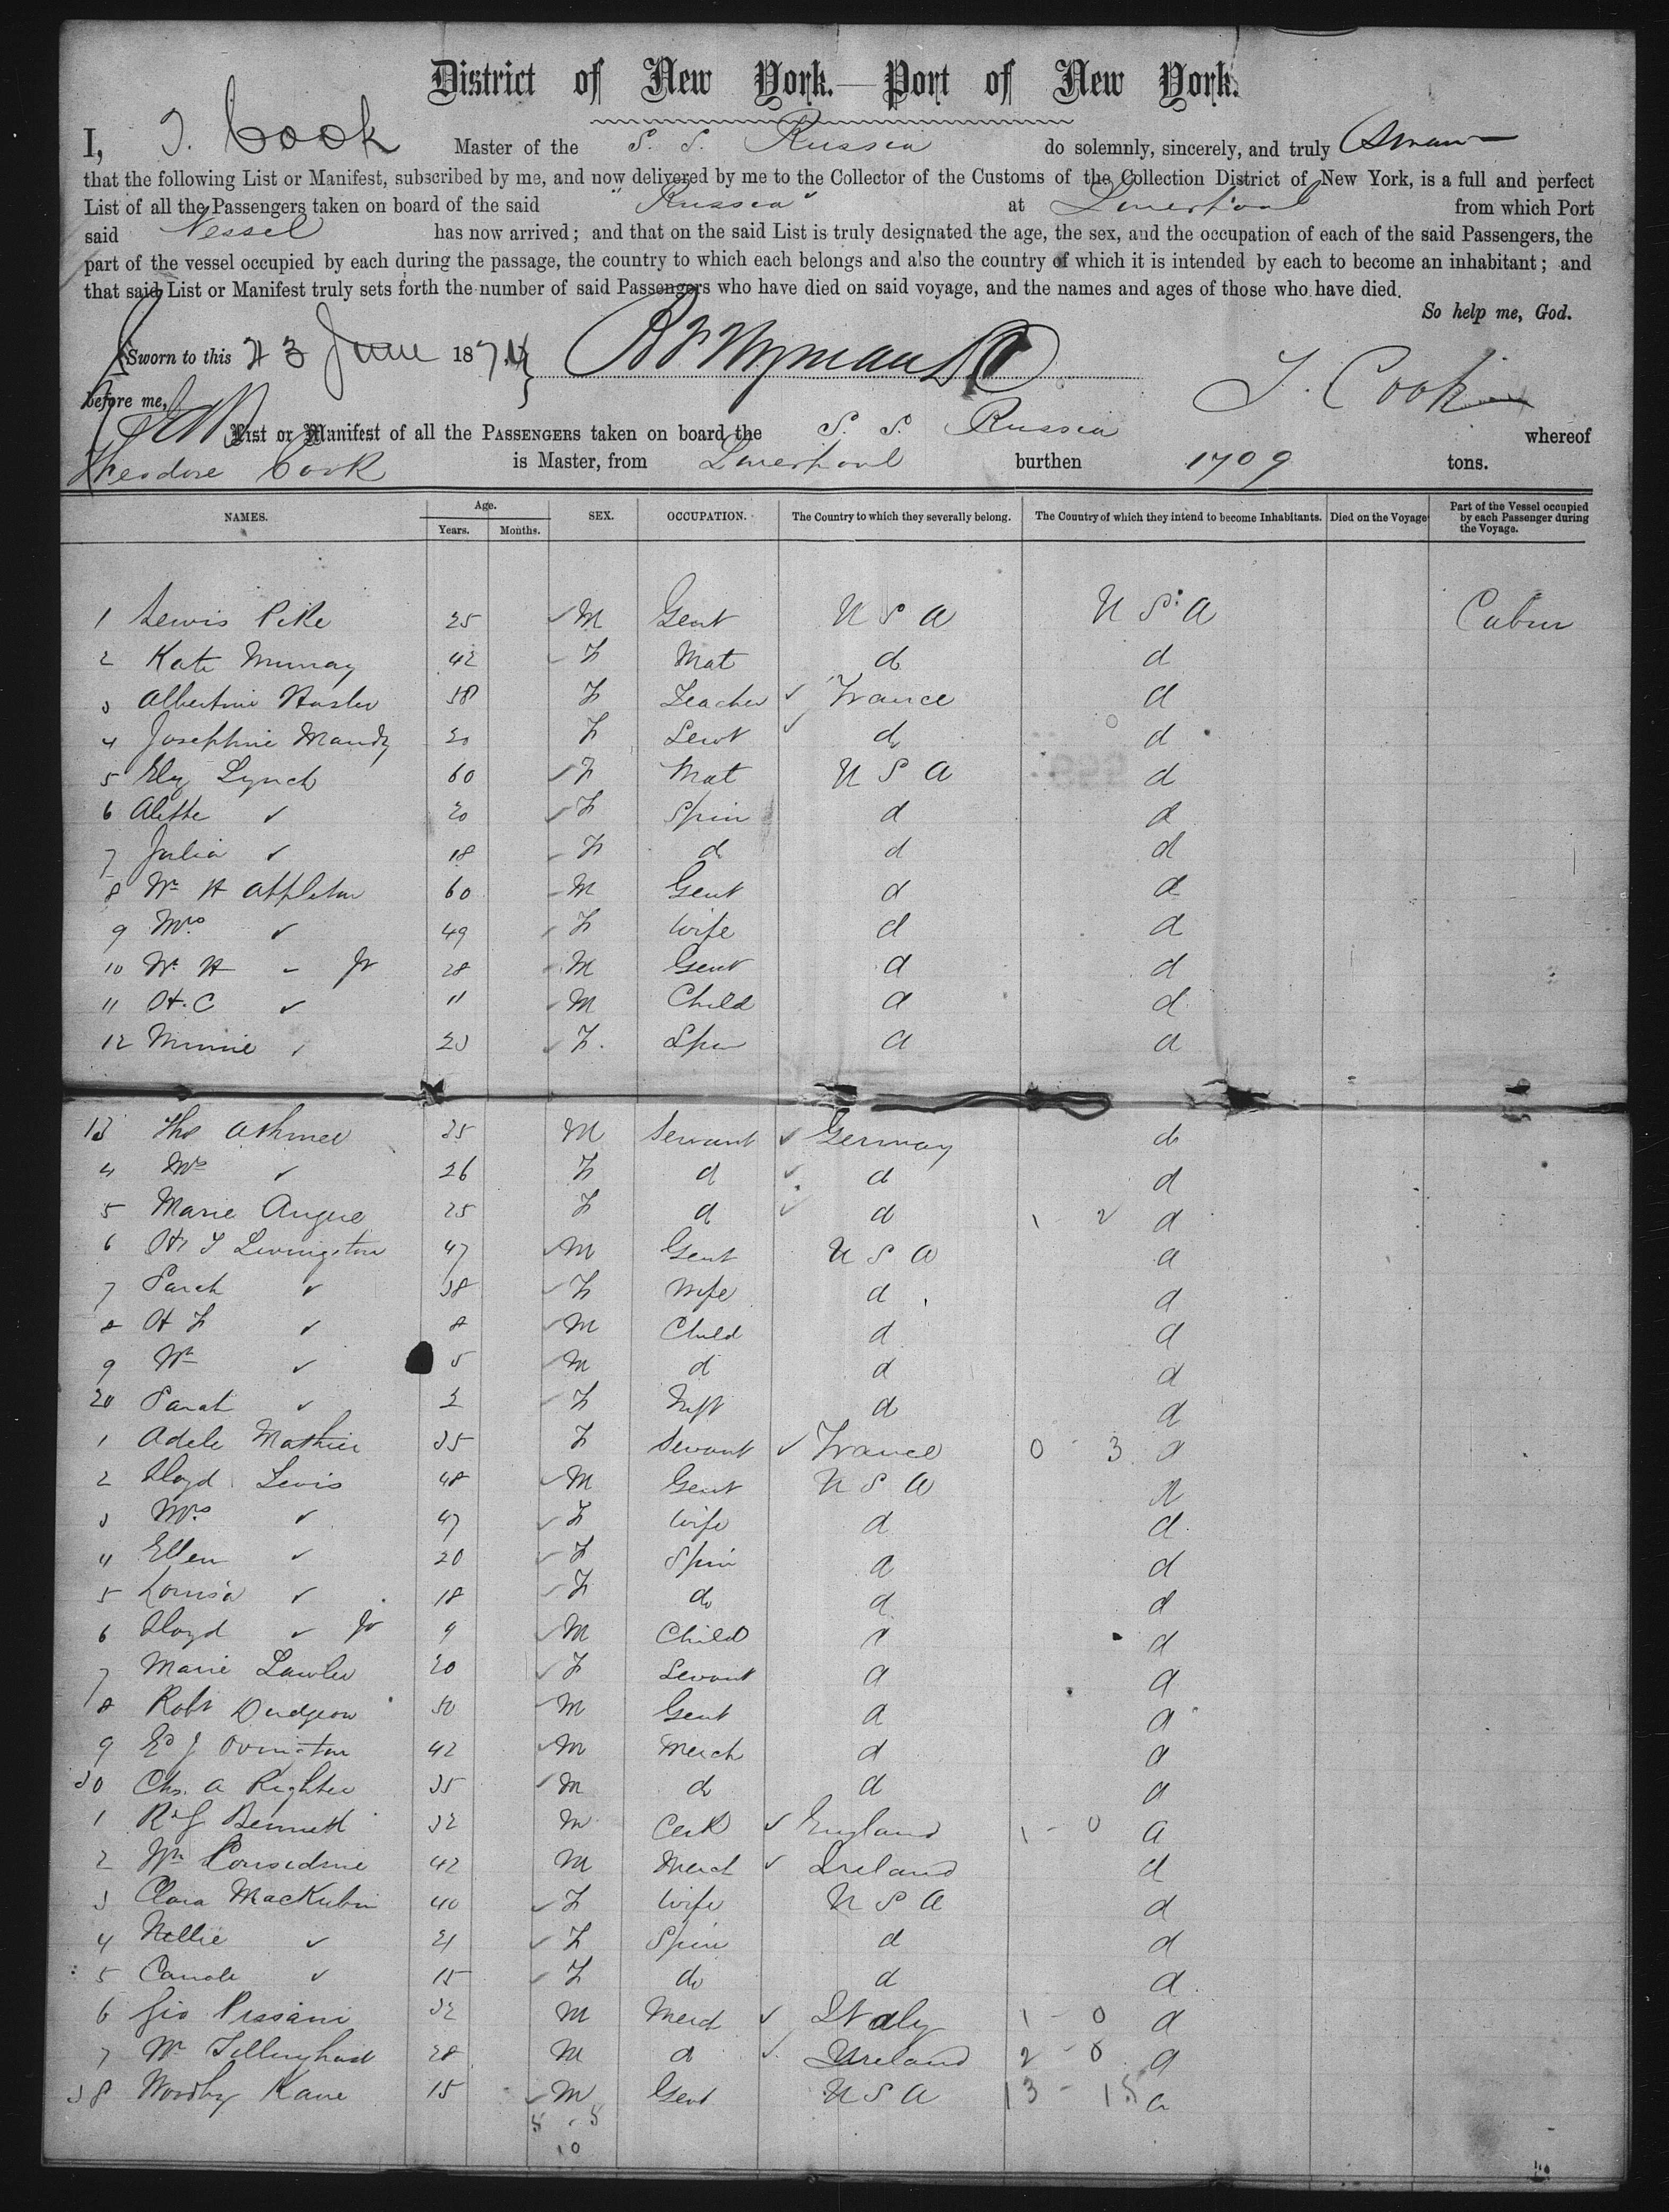 District of New York.—Port of New York.
I, T. Cook Master of the S. S. Russia do solemnly, sincerely, and truly Swear
that the following List or Manifest, subscribed by me, and now delivered by me to the Collector of the Customs of the Collection District of New York, is a full and perfect
List of all the Passengers taken on board of the said "Russia" at Liverpool from which Port
said Vessel has now arrived; and that on the said List is truly designated the age, the sex, and the occupation of each of the said Passengers, the
part of the vessel occupied by each during the passage, the country to which each belongs and also the country of which it is intended by each to become an inhabitant; and
that said List or Manifest truly sets forth the number of said Passengers who have died on said voyage, and the names and ages of those who have died.
So help me, God.
Sworn to this 23 June 1874
before me, T. Cook
List or Manifest of all the PASSENGERS taken on board the S. S. Russia whereof
Theodore Cook is Master, from Liverpool burthen 1709 tons.
NAMES. Age. Years. Months. SEX. OCCUPATION. The Country to which they severally belong. The Country of which they intend to become Inhabitants. Died on the Voyage Part of the Vessel occupied by each Passenger during the Voyage.
1 Lewis Pike 25 M Gent U S A U S A Cabin
2 Kate Murray 42 F Mat d d
3 Albertine Hasler 38 F Teacher France d
4 Josephine 20 F Servt d d
5 Ely Lynch 60 F Mat U S A d
6 20 F Spin d d
7 Julia 18 F d d d
8 Wm H Appleton 60 M Gent d d
9 Mrs 49 F Wife d d
10 Wm H Jr 28 M Gent d d
11 H. C 11 M Child d d
12 Minnie 23 F. Spin d d
13 Tho Ashmel 35 M Servant Germany d
4 Mrs 26 F d d d
5 Marie Angue 25 F d d 1 - 2 d
6 Livingston 47 M Gent U S A d
7 Sarah 38 F Wife d d
8 H F 8 M Child d d
9 Wm 5 M d d d
20 Sarah 2 F Inft d d
1 Adele Mathier 35 F Servant France 0 - 3 d
2 Lloyd Lewis 48 M Gent U S A d
3 Mrs 47 F Wife d d
4 Ellen 20 F Spin d d
5 Louisa 18 F do d d
6 Lloyd Jr 9 M Child d d
7 Marie Lawler 20 F Servant d d
8 Robt Dudgeon 50 M Gent d d
9 Ed J Ovington 42 M Merch d d
30 Chs. A Righter 35 M do d d
1 R J Bennett 32 M Clerk England 1 - 0 d
2 Wm Considine 42 M Merch Ireland d
3 Clara MacKubin 40 F Wife U S A d
4 Nellie 21 F Spin d d
5 Carrole 15 F do d d
6 Gio Pissani 32 M Merch Italy 1 - 0 d
7 Wm Tillinghast 28 M d Ireland 2 - 0 d
38 Woodby Kane 15 M Gent U S A 13 - 15 d
5 - 5
10